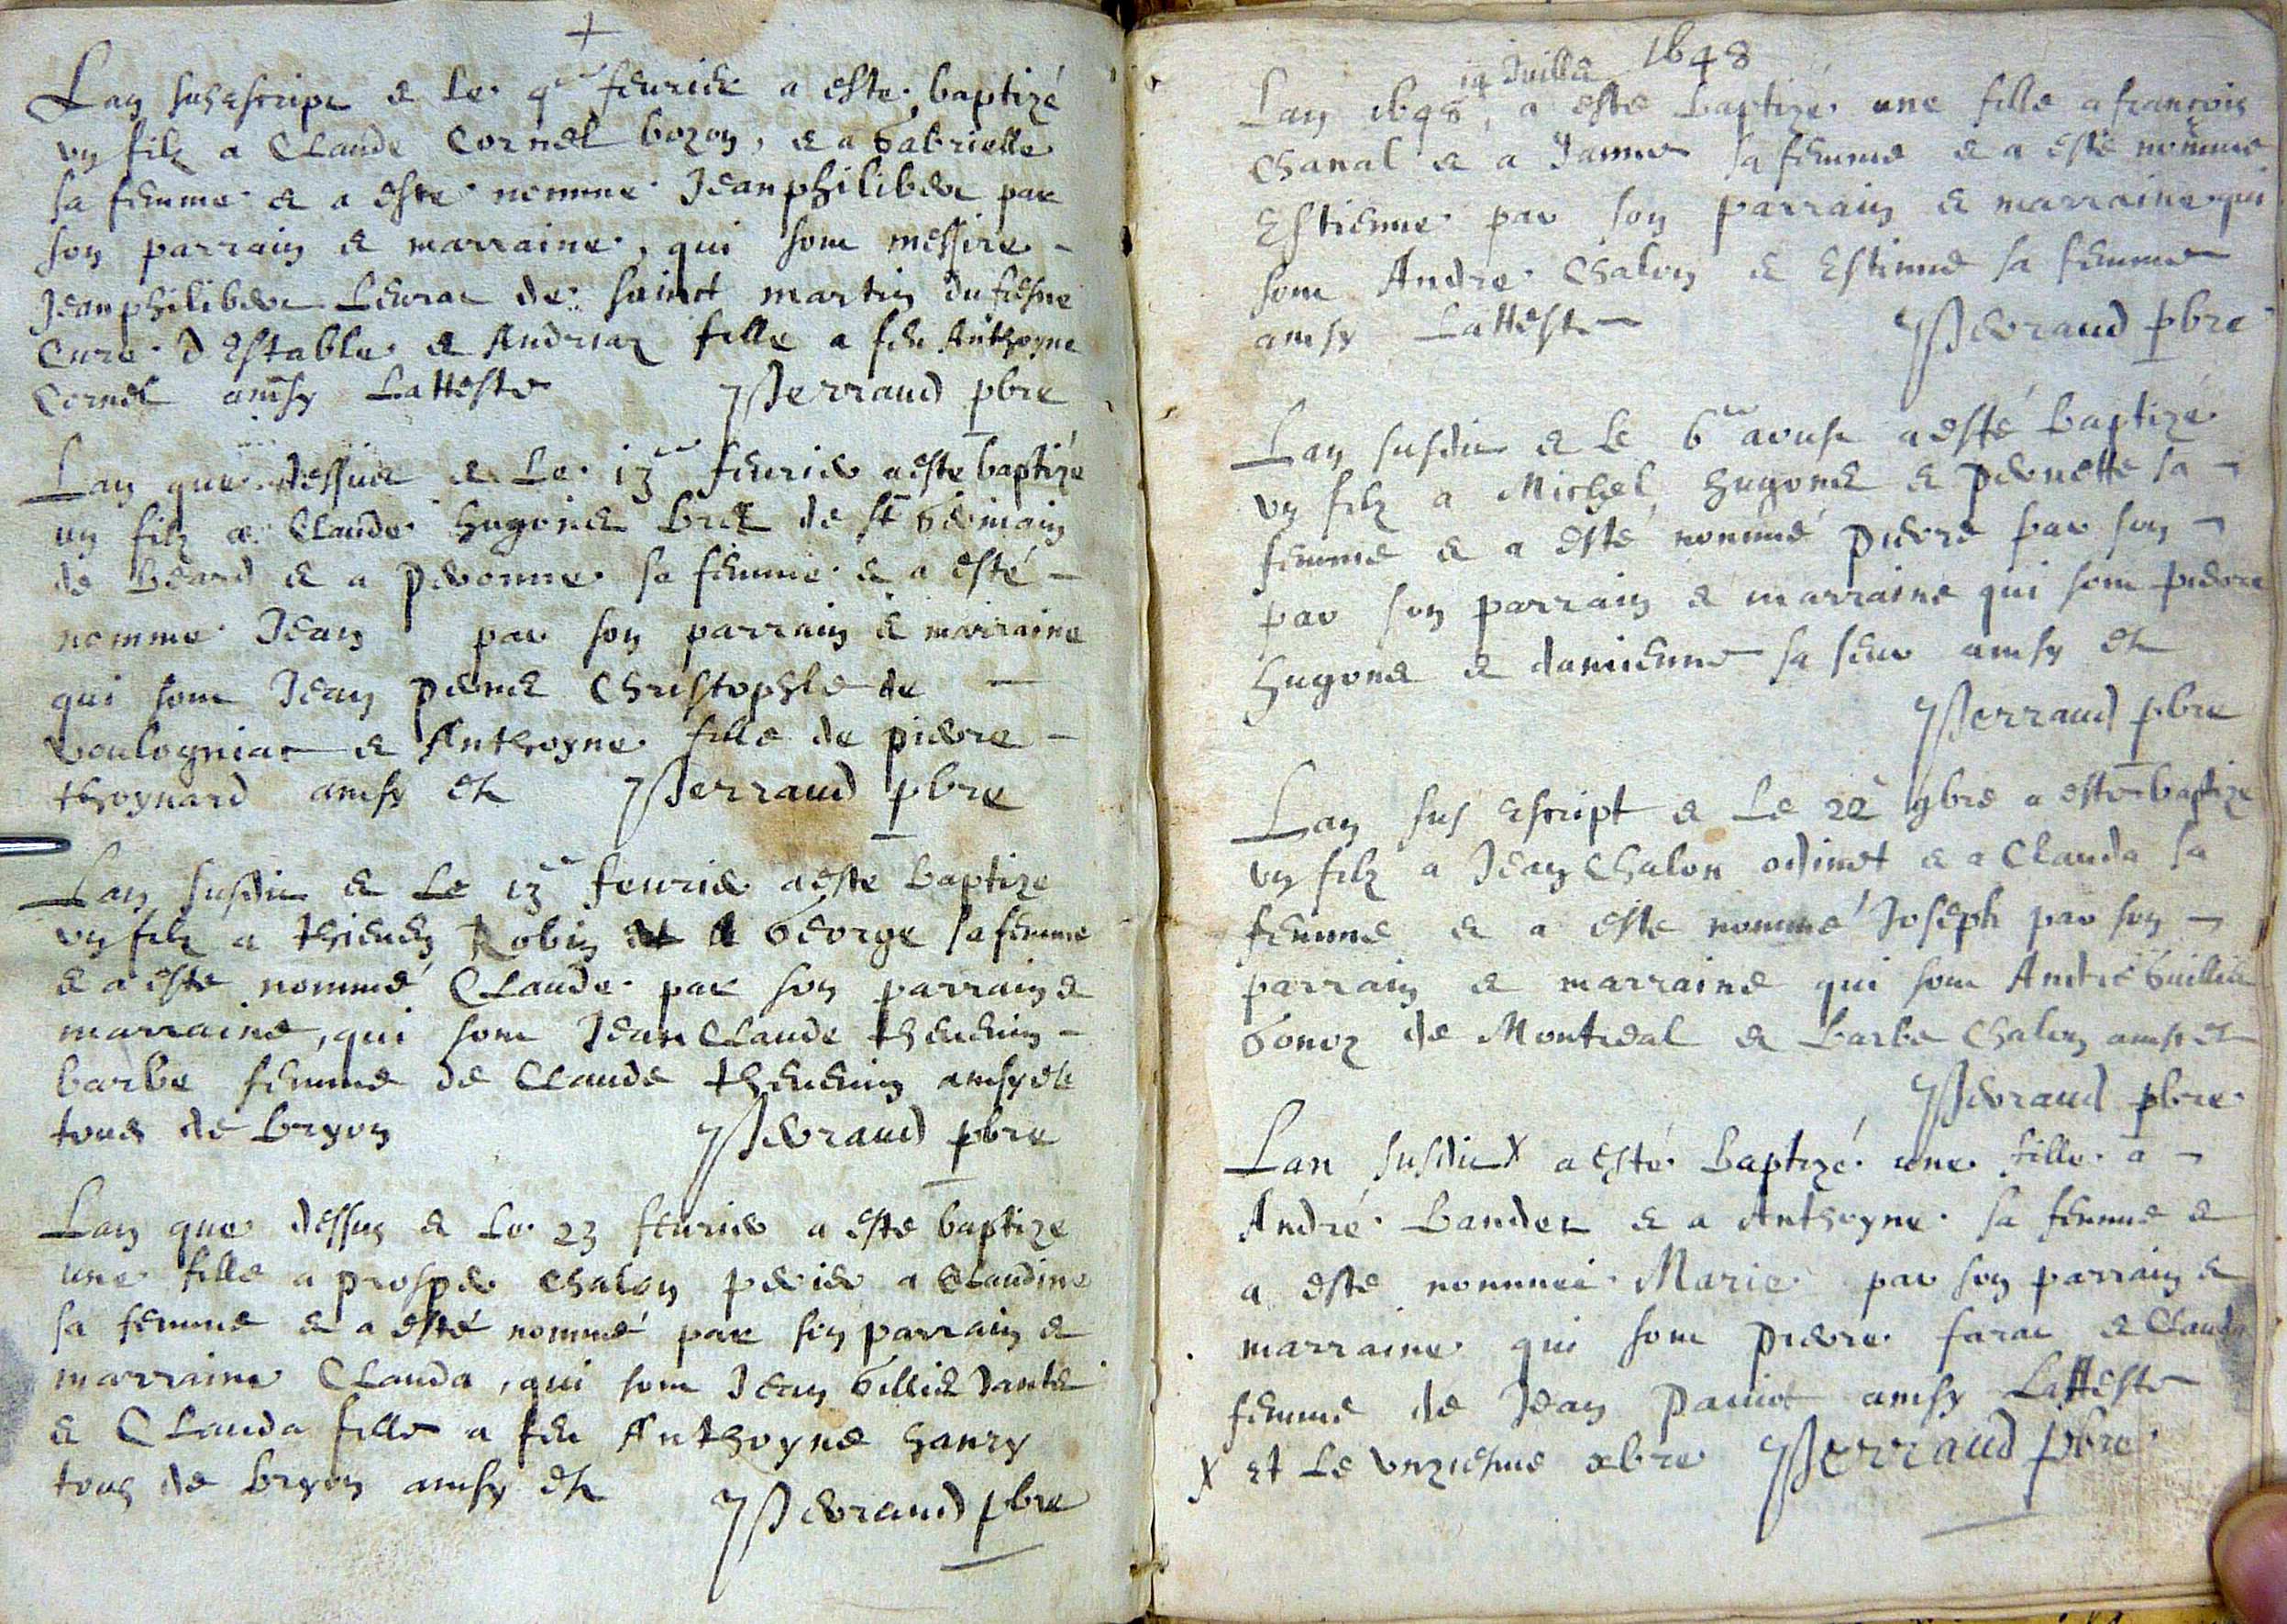 Lan susescript & le 9e feurier a este baptizé
un filz a Claude Cornet bozon, & a Gabrielle
sa femme & a este nomme Jeanphilibert par
son parrain & marraine, qui sont messire
Jeanphilibert Leurat de sainct martin du fresne
Cure d Estables & Andriaz fille a feu Anthoyne
Cornet ainsy Latteste Perraud pbre
Lan que dessus & Le 13e feurier a este baptizé
un filz a Claude hugonet de st Germain
de Beard & a pernonne sa femme & a esté
nomme Jean par son parrain & marraine
qui sont Jean Christophle de
voulogniat & Anthoyne fille de pierre
thoynard ainsy est Perraud pbre
Lan susdit & Le 13e feurier a este Baptize
un filz a thieuen Robin & a George sa femme
& a este nommé Claude par son parrain &
marraine, qui sont Jean Claude theuenin
barbe femme de Claude theuenin ainsy est
tous de bryon Perraud pbre
Lan que dessus & Le 23 feurier a esté baptizé
une fille a prosper Chalon a Claudine
sa femme & a esté nommé par son parrain &
marraine Clauda, qui sont Jean
& Clauda fille a feu Anthoyne hanry
tous de bryon ainsy est Perraud pbre
1648
14 Juillet
Lan 1648, a esté baptizé une fille a francois
Chanal & a Janne sa femme & a esté nommé
Estienne par son parrain & marraine qui
sont Andre Chalon & Estienne sa femme
ainsy Latteste Perraud pbre
Lan susdit & Le 6e aoust a esté baptizé
un filz a Michel hugonet & pernette sa
femme & a esté nommé pierre par son
par son parrain & marraine qui sont pierre
hugonet & damienne sa seur ainsy est
Perraud pbre
Lan sus escript & Le 22e 9bre a esté baptize
un filz a Jean Chalon odinet & a Clauda sa
femme & a este nommé Joseph par son
parrain & marraine qui sont André Guillin
de Montreal & barbe Chalon ainsy est
Perraud pbre
Lan susdit X a esté baptizé une fille a
André bander & a Anthoyne sa femme &
a esté nommée Marie par son parrain &
marraine qui sont pierre farat & Clauda
femme de Jean ainsy Latteste
X et Le unziesme xbre Perraud pbre